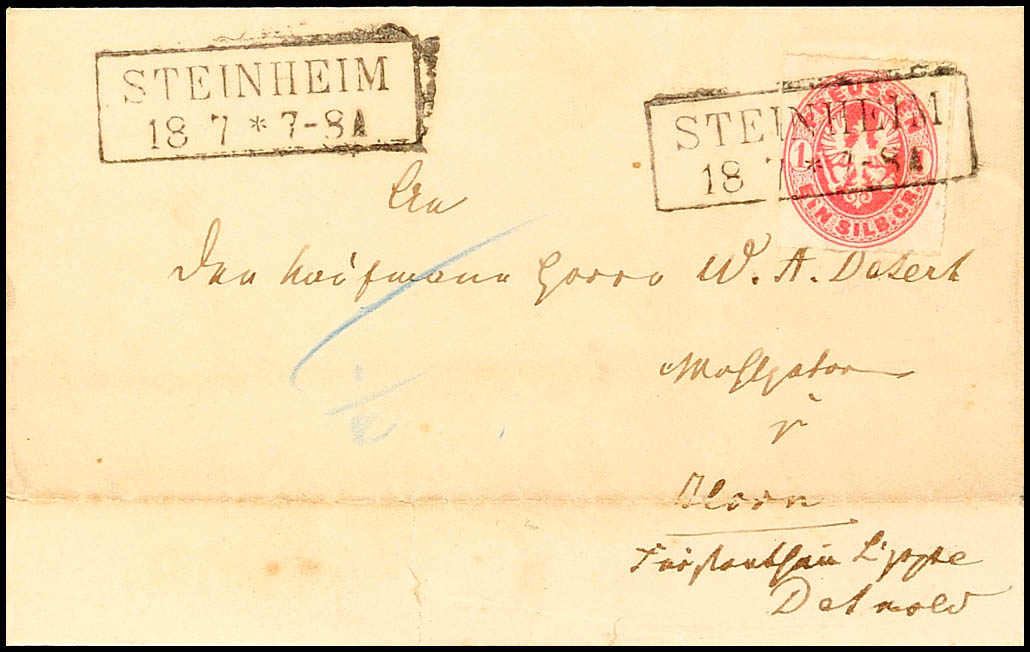 STEINHEIM
18 7 * 7-8A
STEINHEIM
18 7 * 7-8A
PREUSSEN
1
EIN SILB. GR.
An
den Kaufmann Herrn W. A. Detert
Wohlgeboren
in
Fürstenthum Lippe
Detmold